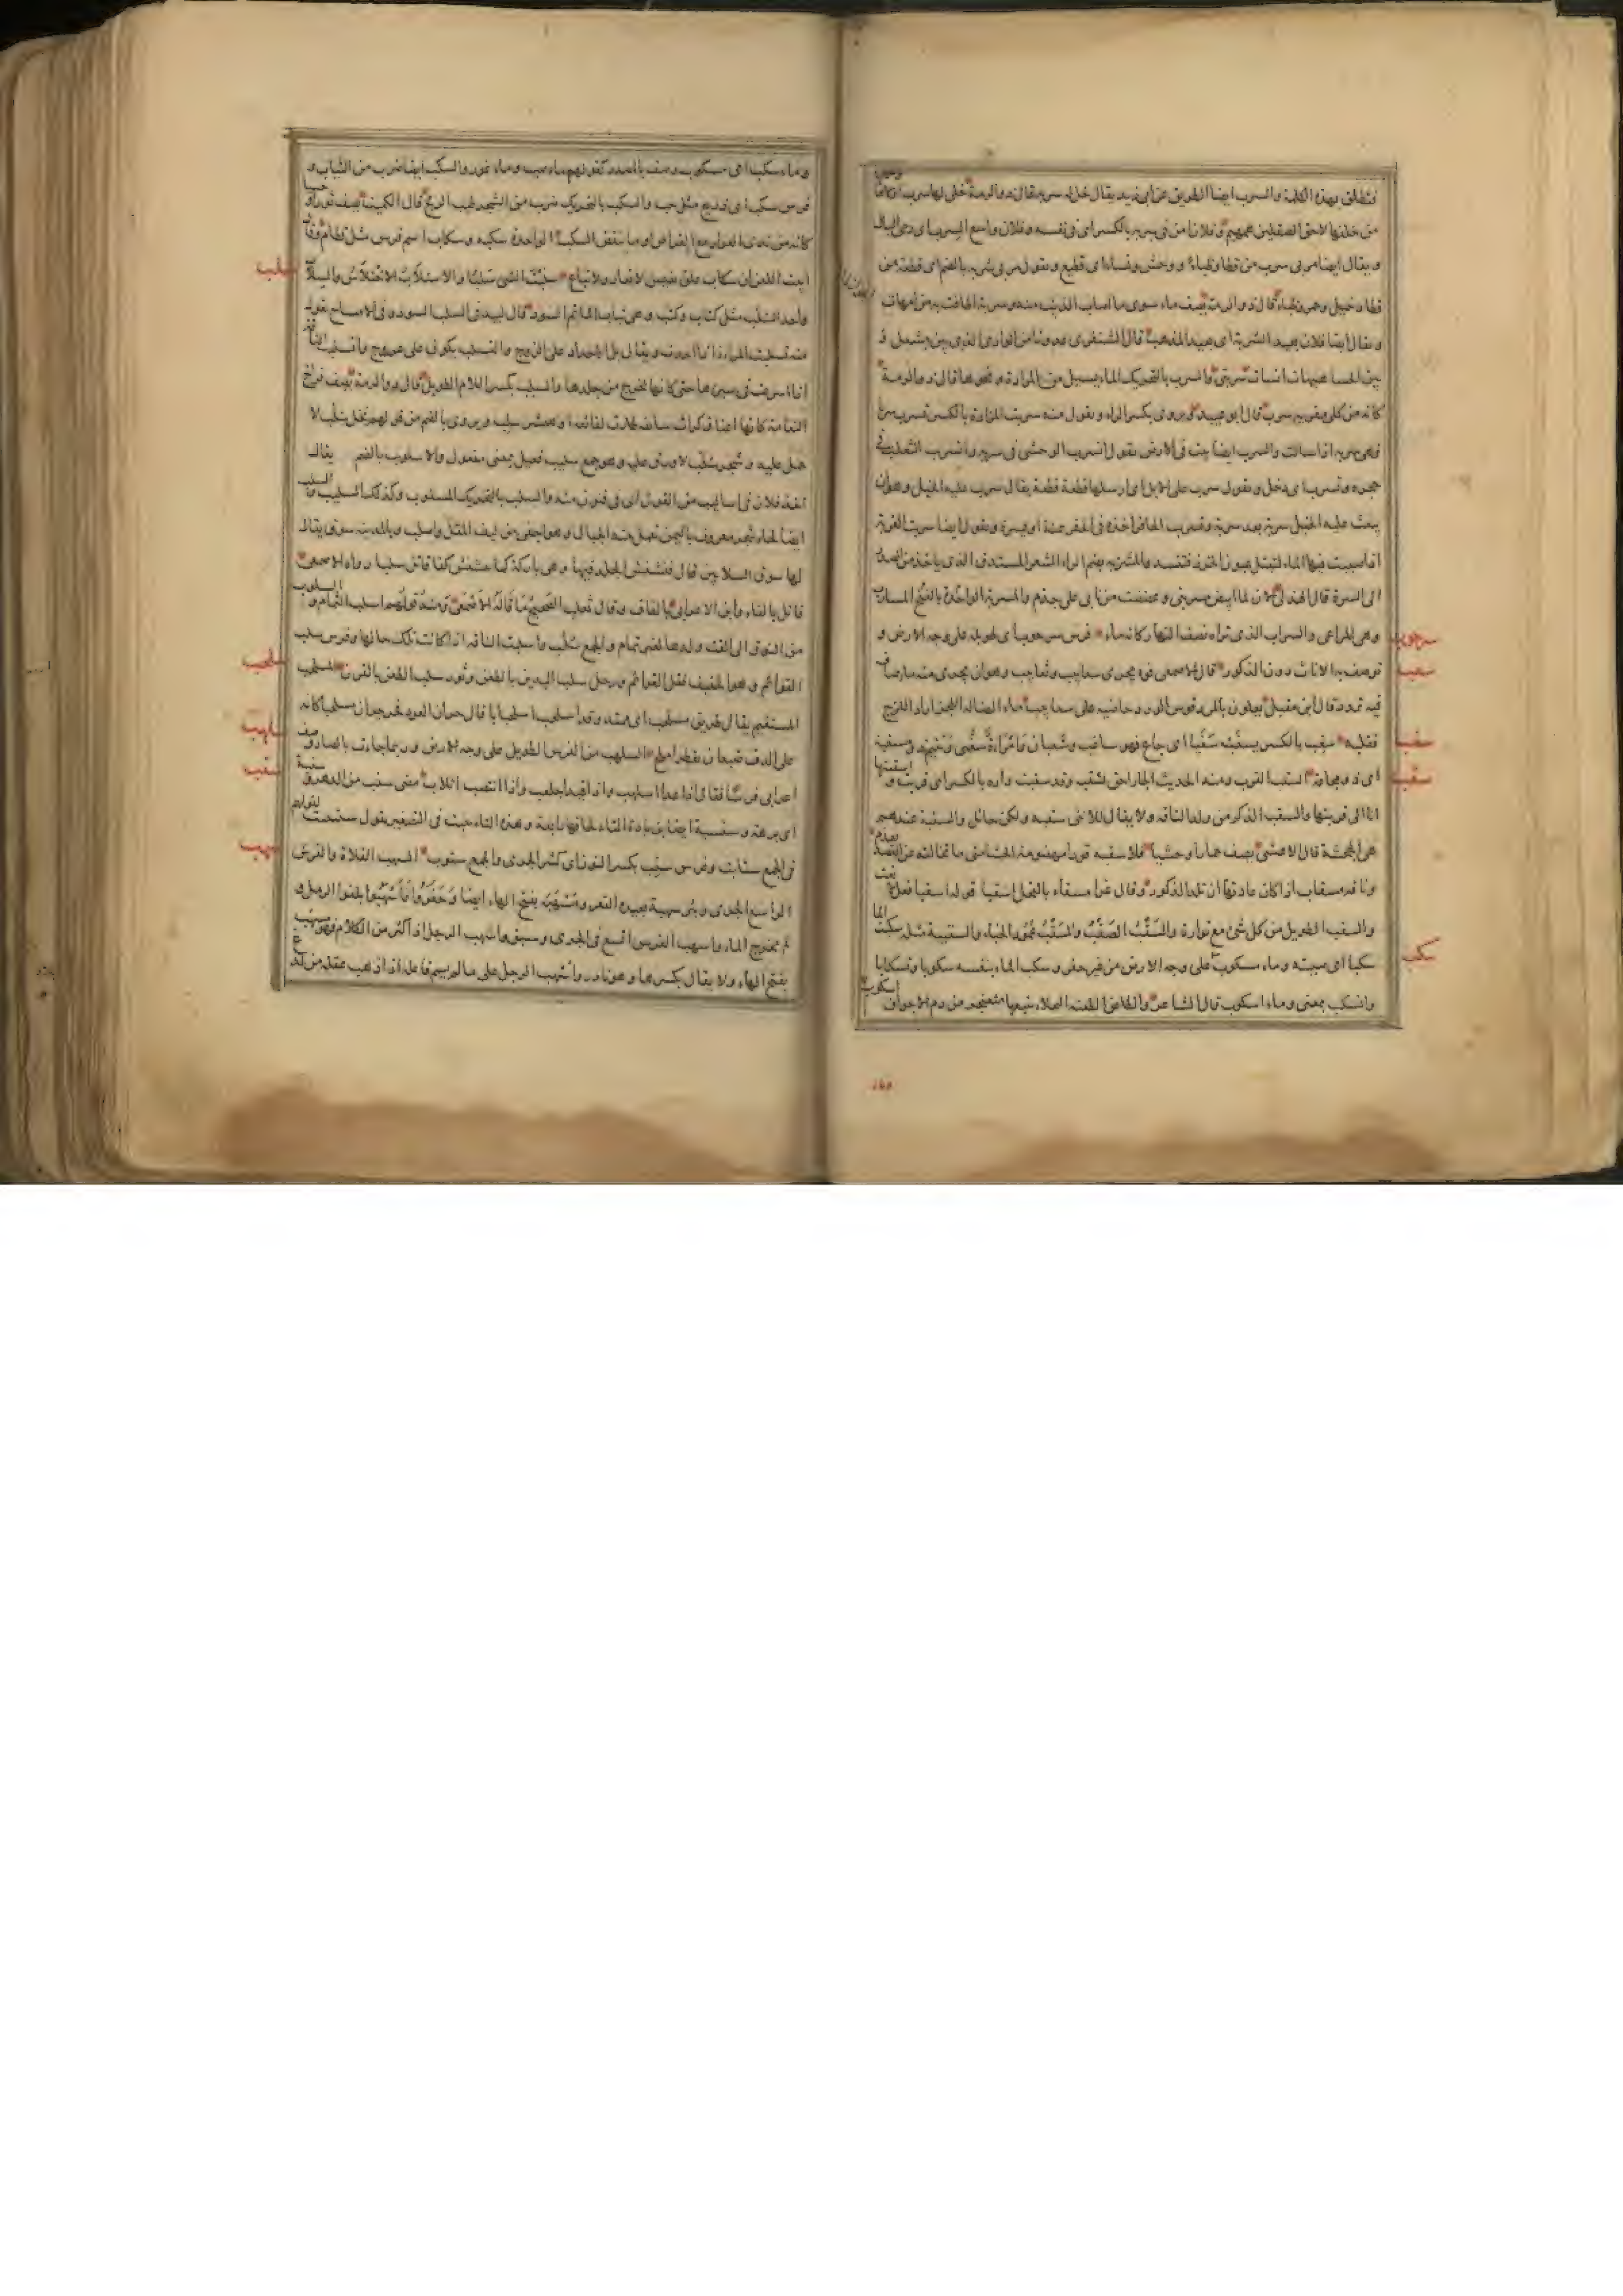 فتطلق بهذه الكلمة والسرب ايضا الطريق عن ابي زيد يقال خل له سربه قال ذو الرمة خلى لها سرب اولاها
من خلفها لاحق الصقلين همهيم وفلان امن في سربه بالكسر اي في نفسه وفلان واسع السرب اي رخي البال
ويقال ايضا مر بي سرب من قطا وظباء ووحش ونساء اي قطيع وتقول مر بي سربة بالضم اي قطعة من
قطا وخيل وحمر وظباء قال ذو الرمة يصف ماء سوى ما اصاب الذئب منه وسربة اطافت به من امهات
ويقال ايضا فلان بعيد السربة اي بعيد المذهب قال الشنفرى غدونا من الوادي الذي بين مشعل و
بين الحسا هيهات انسأت سربتي والسرب بالتحريك الماء يسيل من المزادة ونحوها قال ذو الرمة
كانه من كلى مفرية سرب قال ابو عبيد ويروى بكسر الراء وتقول منه سربت المزادة بالكسر تسرب سربا
فهي سربة اذا سالت والسرب ايضا بيت في الارض تقول انسرب الوحشي في سربه وانسرب الثعلب في
جحره وتسرب اي دخل وتقول سرب علي الابل اي ارسلها قطعة قطعة يقال سرب عليه الخيل وهو ان
يبعث عليه الخيل سربة بعد سربة وتسريب الحافر اخذه في الحفر يمنة او يسرة وتقول ايضا سربت القربة
اذا صببت فيها الماء لتبتل عيون الخرز فتنسد والمسربة بضم الراء الشعر المستدق الذي ياخذ من الصدر
الى السرة قال الذهلي الآن لما ابيض مسربتي وعضضت من نابي على جذم والمسربة بالفتح واحدة المسارب
وهي المراعي والسراب الذي تراه نصف النهار كانه ماء فرس سرحوب اي طويلة على وجه الارض و
توصف به الاناث دون الذكور قال الاصمعي فوه يجري سعابيب وثعابيب وهو ان يجري منه ماء صاف
فيه تمدد قال ابن مقبل يعلون بالمردقوش الورد ضاحية على سعابيب ماء الضالة اللجز اراد اللزج
فقلبه سغب بالكسر يسغب سغبا اي جاع فهو ساغب وسغبان وامراة سغبى ويتيم ذو مسغبة
اي ذو مجاعة السقب القرب ومنه الحديث الجار احق بسقبه وقد سقبت داره بالكسر اي قربت و اسقبتها
انا اي قربتها والسقب الذكر من ولد الناقة ولا يقال للانثى سقبة ولكن حائل والسقبة عندهم
هي الجحشة قال الاعشى يصف حمارا وحشيا تلا سقبة قوداء مهضومة الحشا متى ما تخالفه عن القصد يعذم
وناقة مسقاب اذا كان عادتها ان تلد الذكور وقال غراء مسقابا لفحل اسقبا قوله اسقبا فعل نعت
والسقب الطويل من كل شيء مع ترارة والسقب الصقب والسقب عمود الخباء والسقيبة مثله سكبت الماء
سكبا اي صببته وماء مسكوب على وجه الارض من غير حفر وسكب الماء بنفسه سكوبا وتسكابا
وانسكب بمعنى وماء اسكوب قال الشاعر والطاعن الطعنة النجلاء يتبعها مثعنجر من دم الاجواف اسكوب
سرحوب
سعب
سغب
سقب
سكب
وماء سكب اي مسكوب وصف بالمصدر كقولهم ماء صب وماء غور والسكب ايضا ضرب من الثياب و
فرس سكب اي ذريع مثل حت والسكب بالتحريك ضرب من الشجر طيب الريح قال الكميت يصف ثورا
كانه من ندى العرار مع القراص وما ينفض السكب الواحدة سكبة وسكاب اسم فرس مثل قطام وقال
ابيت اللعن ان سكاب علق نفيس لا يعار ولا يباع سلبت الشيء سلبا والاستلاب الاختلاس والسلاب
واحد السلب مثل كتاب وكتب وهي ثياب الماتم السود قال لبيد في السلب السود وفي الامساح تقول
منه تسلبت المراة اذا احدت ويقال بل الاحداد على الزوج والتسلب يكون على غيره وانسلبت الناقة
اذا اسرعت في سيرها حتى كانها تخرج من جلدها والسلب بكسر اللام الطويل قال ذو الرمة يصف فراخ
النعامة كانها اعناقها كراث سائفة طارت لفائفه او هيشر سلب ويروى بالضم من قولهم نخل سلب لا
حمل عليه وشجر سلب لا ورق عليه وهو جمع سليب فعيل بمعنى مفعول والاسلوب بالضم الفن يقال
اخذ فلان في اساليب من القول اي في فنون منه والسلب بالتحريك المسلوب وكذلك السليب والسلب
ايضا لحاء شجر معروف باليمن تعمل منه الحبال وهو اجفى من ليف المقل واصلب وبالمدينة سوق يقال
لها سوق السلابين قال فنشنش الجلد عنها وهي باركة كما تنشنش كفا قاتل سلبا رواه الاصمعي
فاتل بالفاء وابن الاعرابي بالقاف وقال ثعلب الصحيح ما قاله الاصمعي ومنه قولهم اسلب الثمام والسلوب
من النوق التي القت ولدها لغير تمام والجمع سلب واسلبت الناقة اذا كانت تلك حالها وفرس سلب
القوائم وهو الخفيف نقل القوائم ورجل سلب اليدين بالطعن وثور سلب الطعن بالقرن المسلحب
المستقيم يقال طريق مسلحب اي ممتد وقد اسلحب اسلحبابا قال جران العود فخر جران مسلحبا كانه
على الدف ضبعان تقطر املح السلهب من الفرس الطويل على وجه الارض وربما جاءت بالصاد وصف
اعرابي فرسا فقال اذا عدا اسلهب واذا قيد اجلعب واذا انتصب اتلاب مضى سنب من الدهر وسنبة
اي برهة وسنبتة ايضا بزيادة التاء والحاقها برابعة وهذه التاء تثبت في التصغير تقول سنيبتة لقولهم
في الجمع سنابت وفرس سنب بكسر النون اي كثير الجري والجمع سنوب السهب الفلاة والفرس
الواسع الجري وبئر سهبة بعيدة القعر ومسهبة بفتح الهاء ايضا وحفروا فاسهبوا بلغوا الرمل و
لم يخرج الماء واسهب الفرس اتسع في الجري وسبق واسهب الرجل اذا اكثر من الكلام فهو مسهب
بفتح الهاء ولا يقال بكسرها وهو نادر واسهب الرجل على ما لم يسم فاعله اذا ذهب عقله من لدغ
سلب
سلحب
سلهب
سنب
سهب